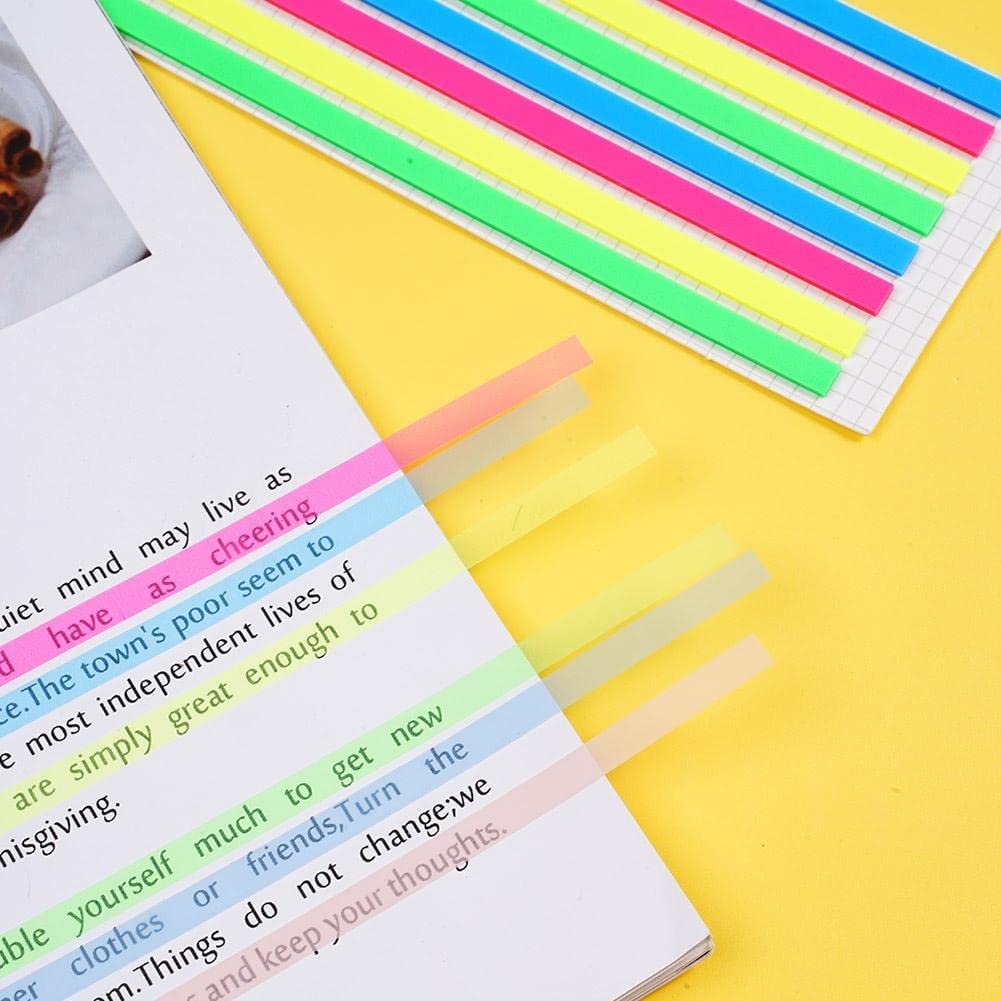 mind may live as
have as cheering
The town's poor seem to
most independent lives of
are simply great enough to
yourself much to get new
clothes or friends,Turn the
Things do not change;we
and keep your thoughts.